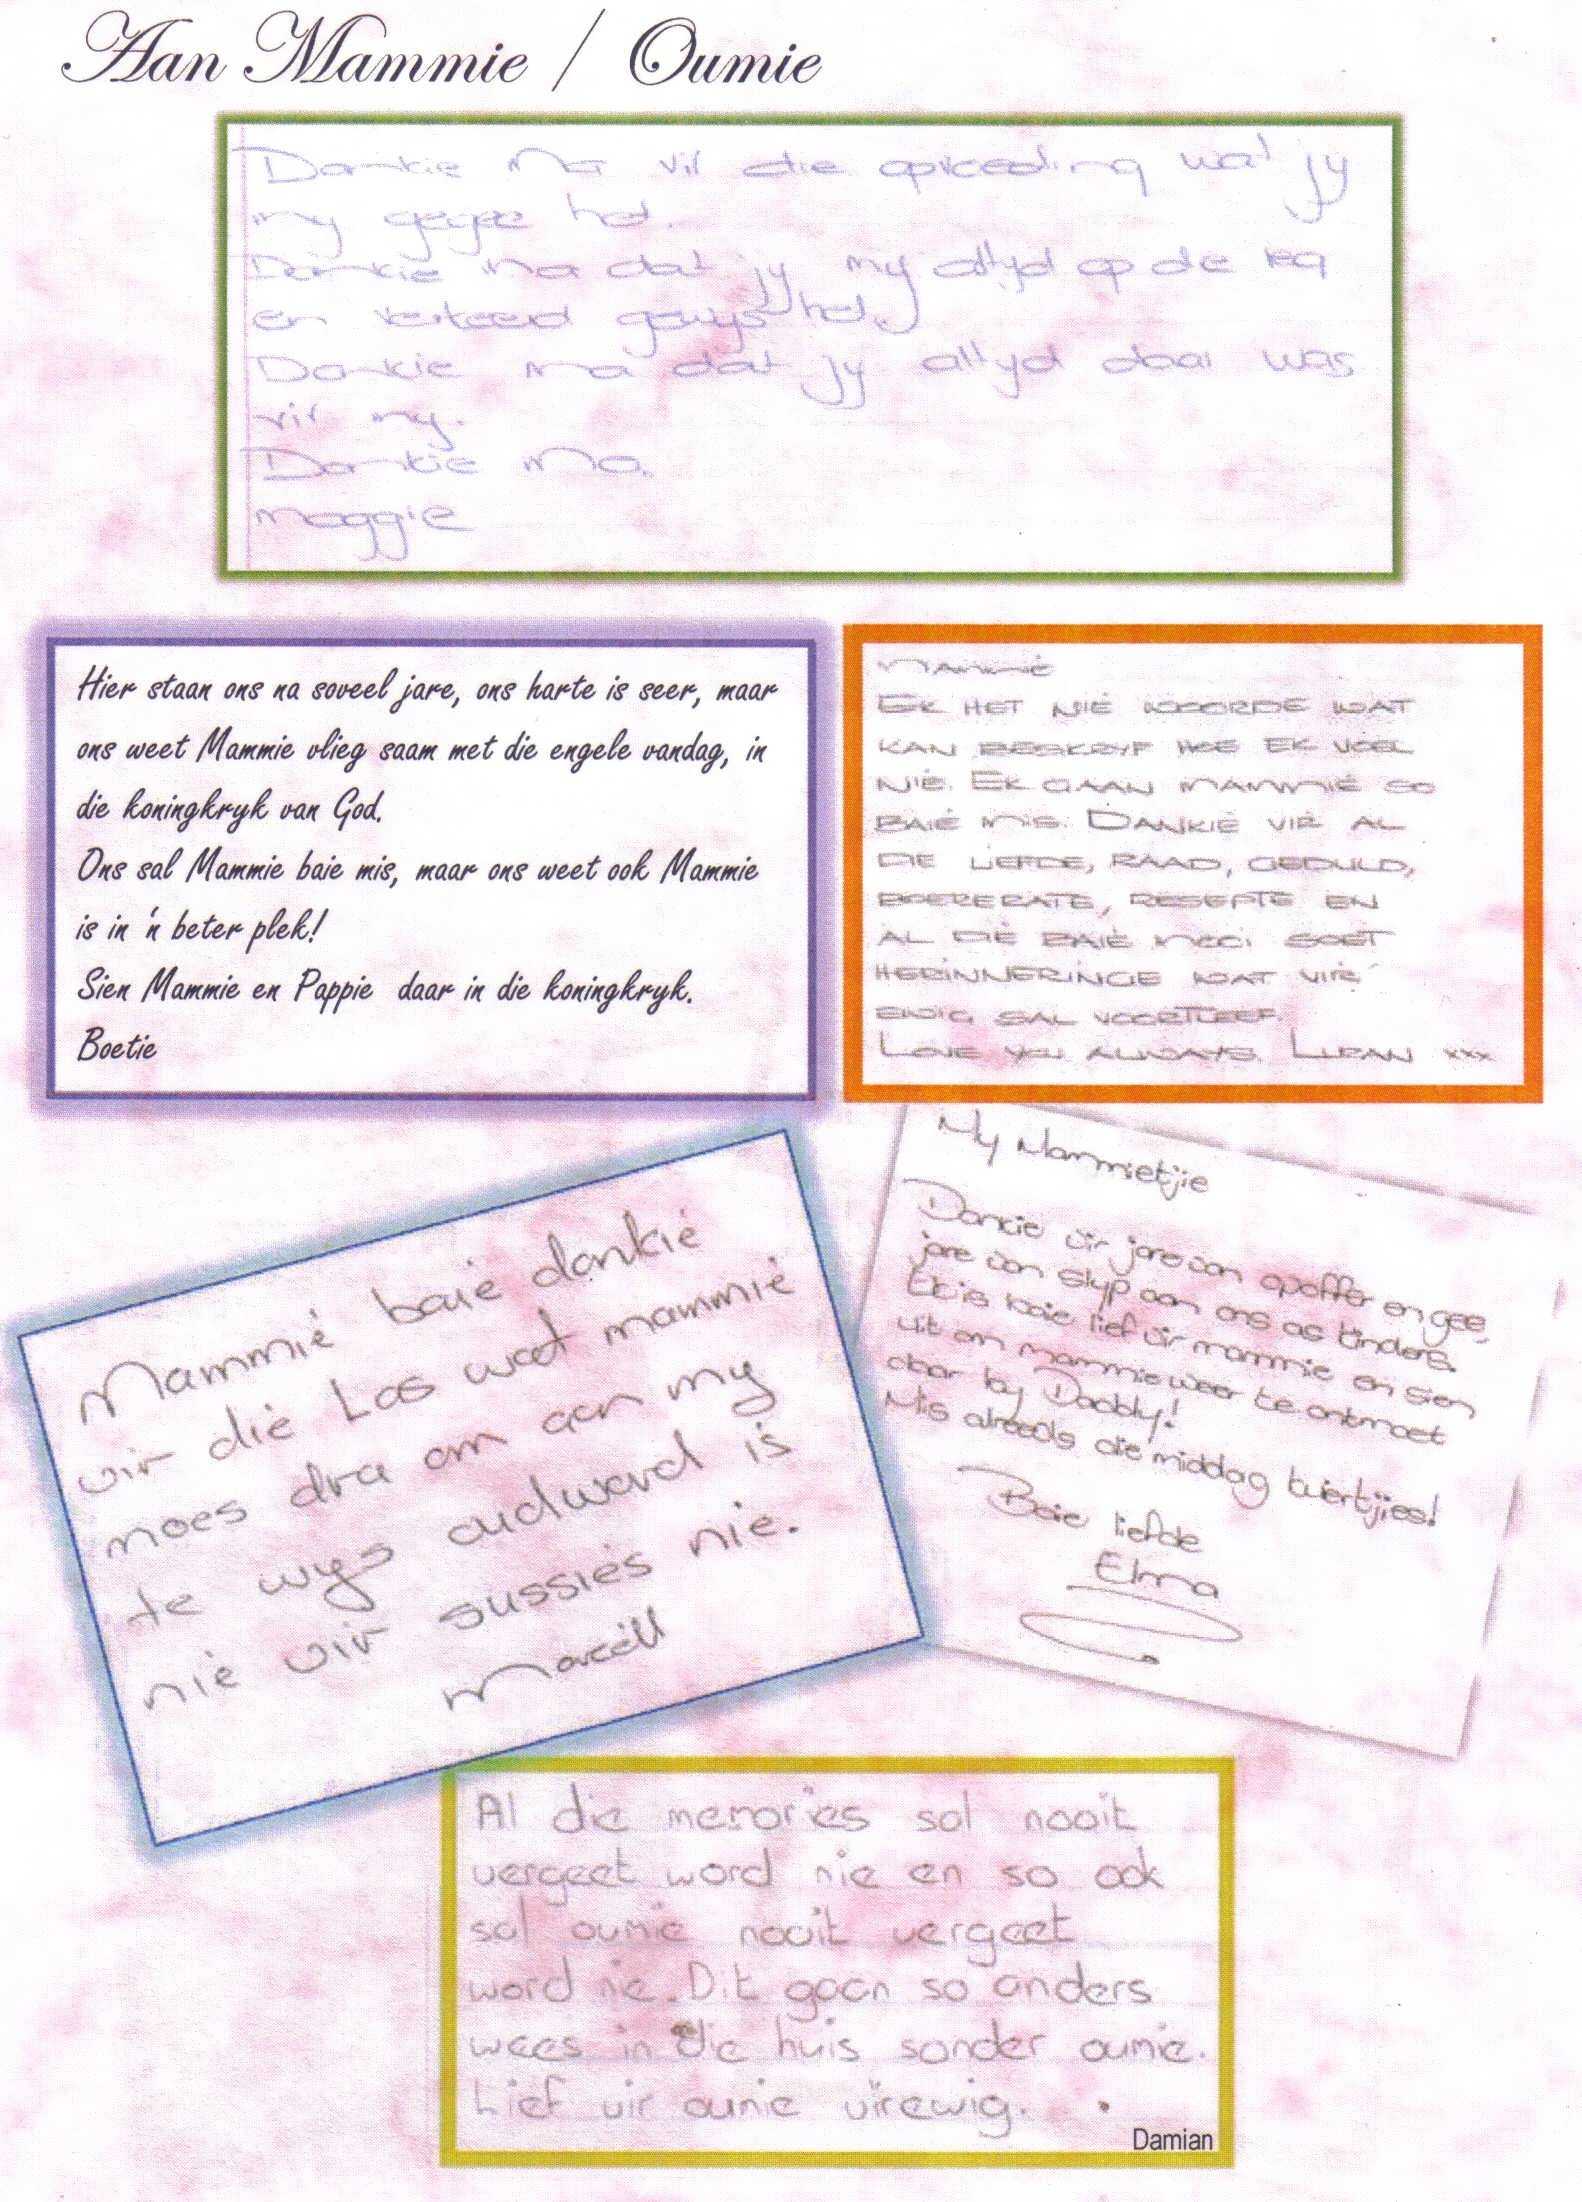 Aan Mammie / Oumie
Dankie Ma vir die opvoeding wat jy
my gegee het.
Dankie ma dat jy my altyd op die reg
en verkeerd gewys het.
Dankie ma dat jy altyd daar was
vir my.
Dankie Ma.
Maggie
Hier staan ons na soveel jare, ons harte is seer, maar
ons weet Mammie vlieg saam met die engele vandag, in
die koningkryk van God.
Ons sal Mammie baie mis, maar ons weet ook Mammie
is in 'n beter plek!
Sien Mammie en Pappie daar in die koningkryk.
Boetie
MAMMIE
EK HET NIE WOORDE WAT
KAN BESKRYF HOE EK VOEL
NIE. EK GAAN MAMMIE SO
BAIE MIS. DANKIE VIR AL
DIE LIEFDE, RAAD, GEDULD,
BOERERATE, RESEPTE EN
AL DIE BAIE MOOI SOET
HERINNERINGE WAT VIR
EWIG SAL VOORTLEEF.
LOVE YOU ALWAYS. LURAN xxx
Mammie baie dankie
vir die Las wat mammie
moes dra om aan my
te wys oudword is
nie vir sussies nie.
Marcéll
My Mammietjie
Dankie vir jare van opoffer en gee,
jare van skyp aan ons as kinders.
Ek is baie lief vir mammie en sien
uit om mammie weer te ontmoet
daar by Daddy!
Mis alreeds die middag kuiertjies!
Baie liefde
Elma
Al die memories sal nooit
vergeet word nie en so ook
sal oumie nooit vergeet
word nie. Dit gaan so anders
wees in die huis sonder oumie.
Lief vir oumie virewig.
Damian